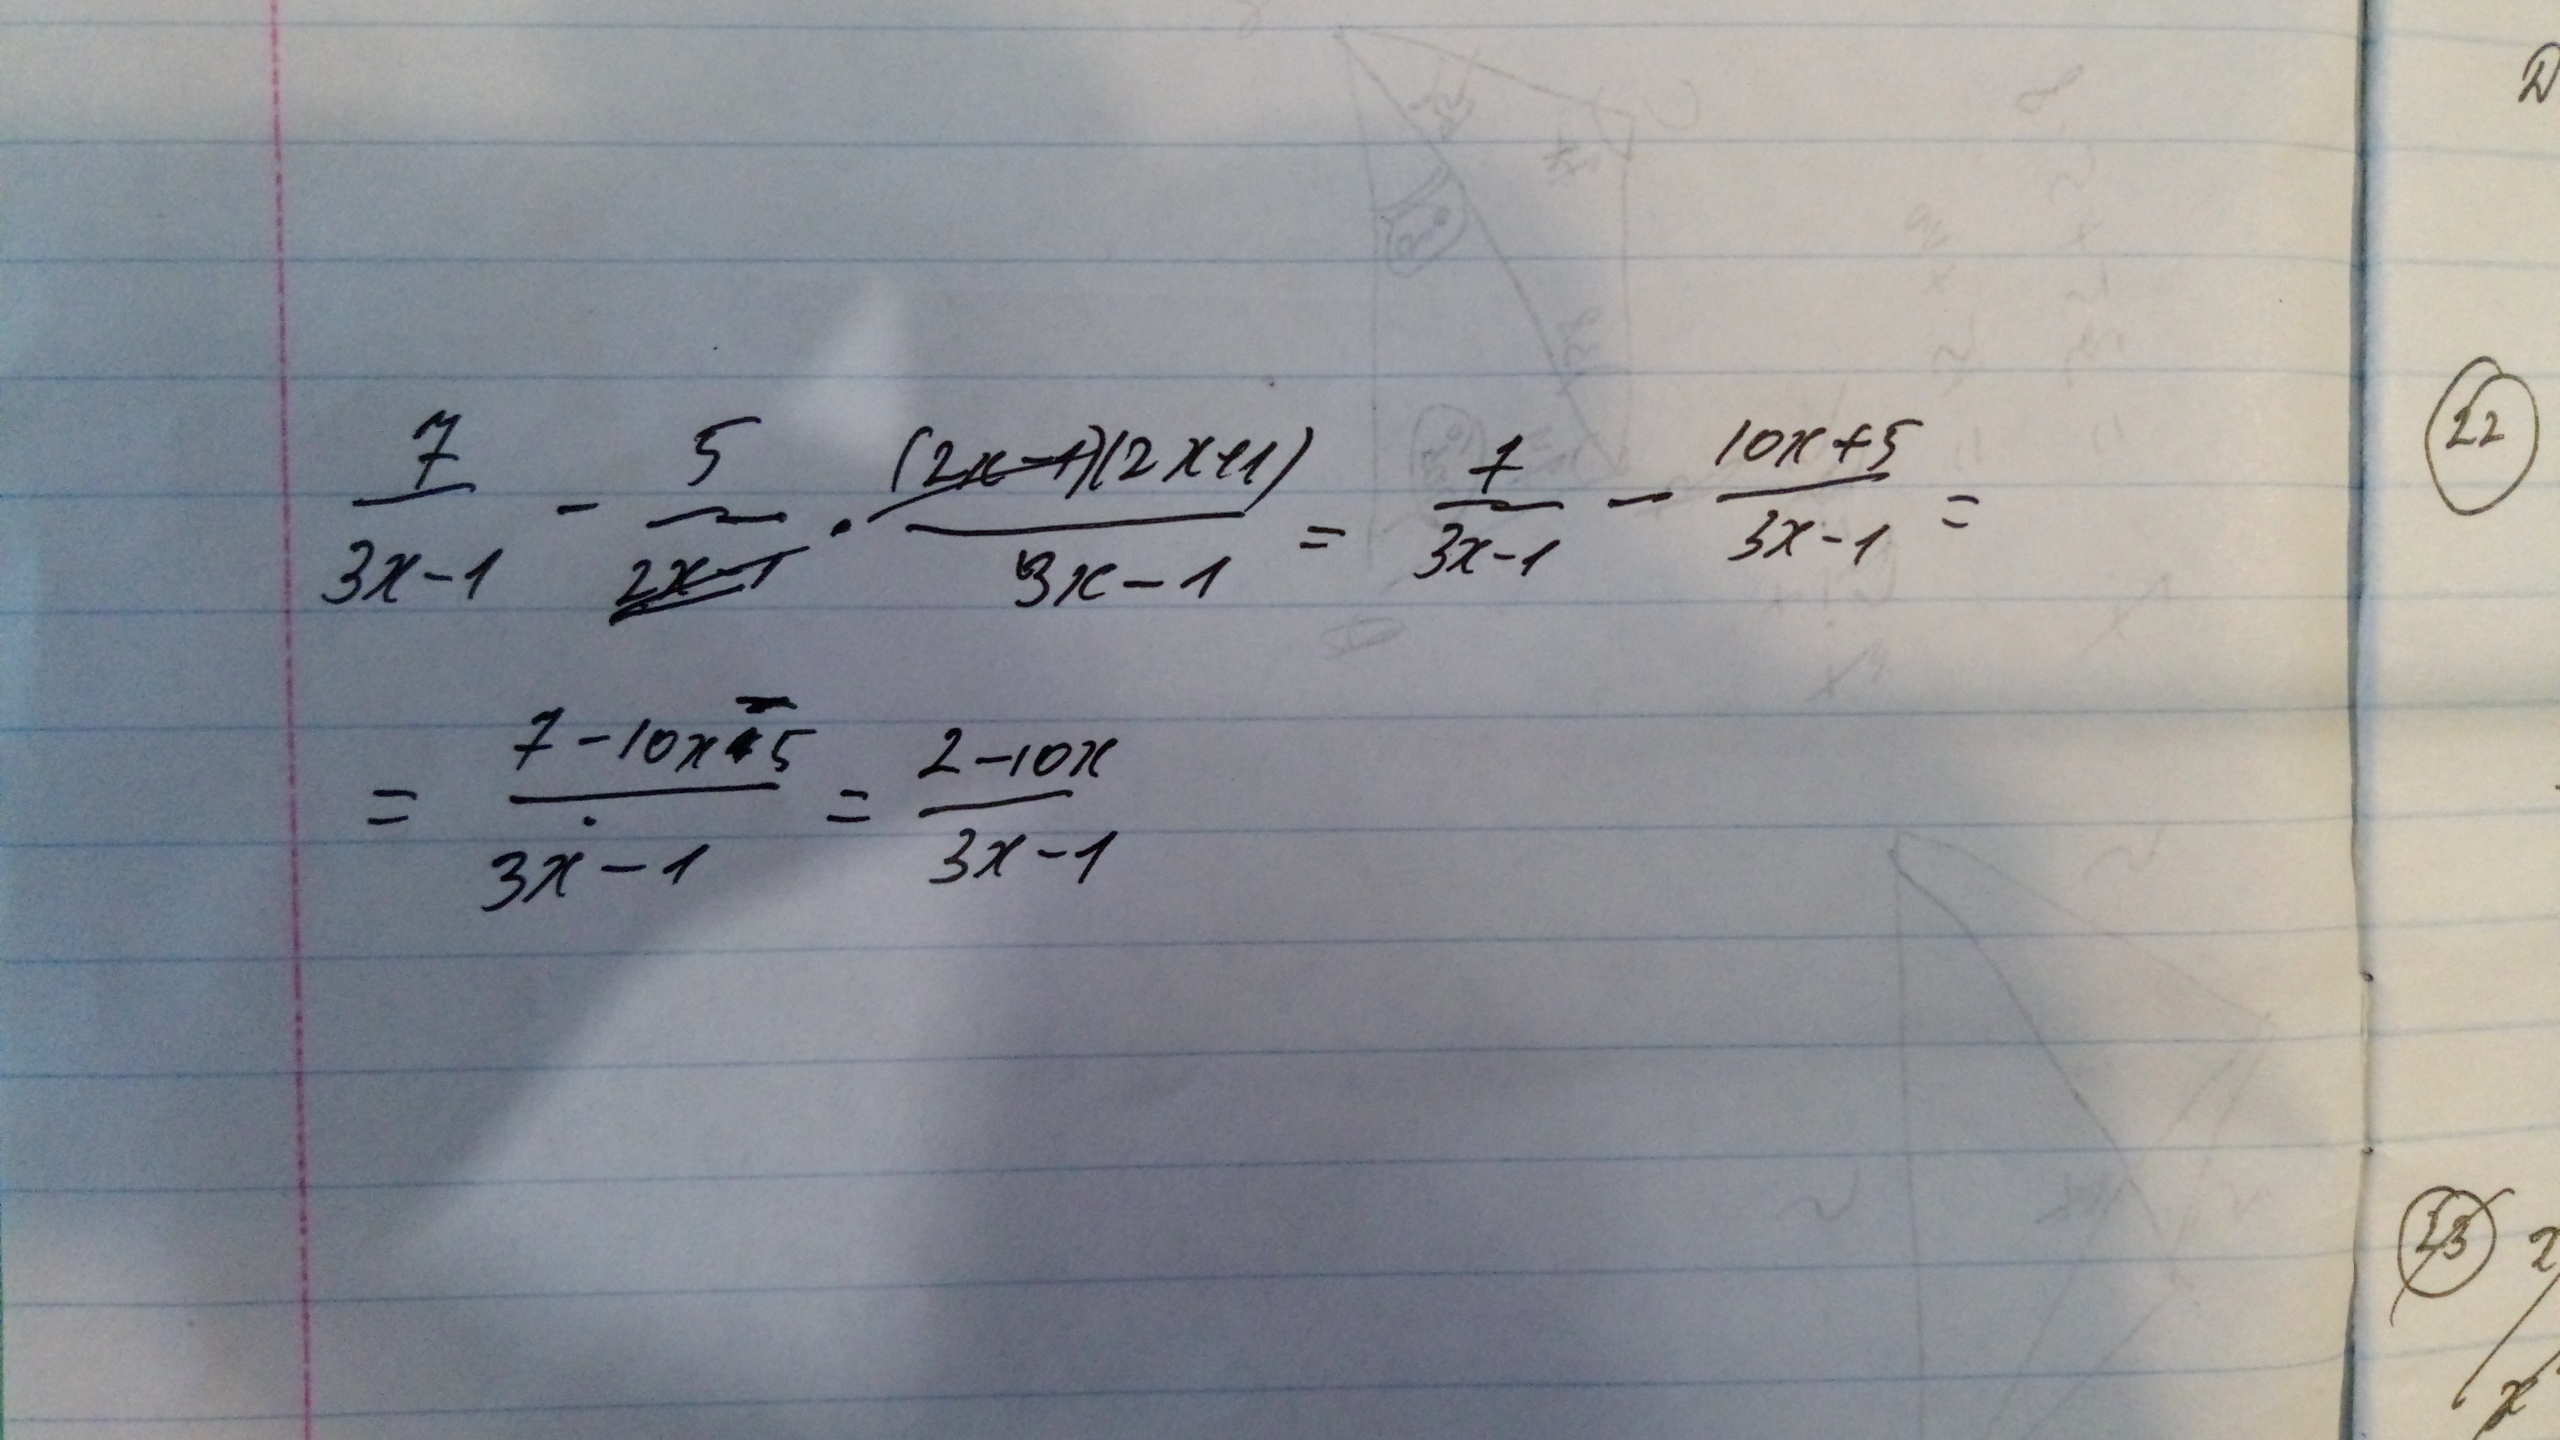 7/(3x-1) - 5/(2x-1) · (2x-1)(2x+1)/(3x-1) = 7/(3x-1) - (10x+5)/(3x-1) =
= (7-10x-5)/(3x-1) = (2-10x)/(3x-1)
22
23